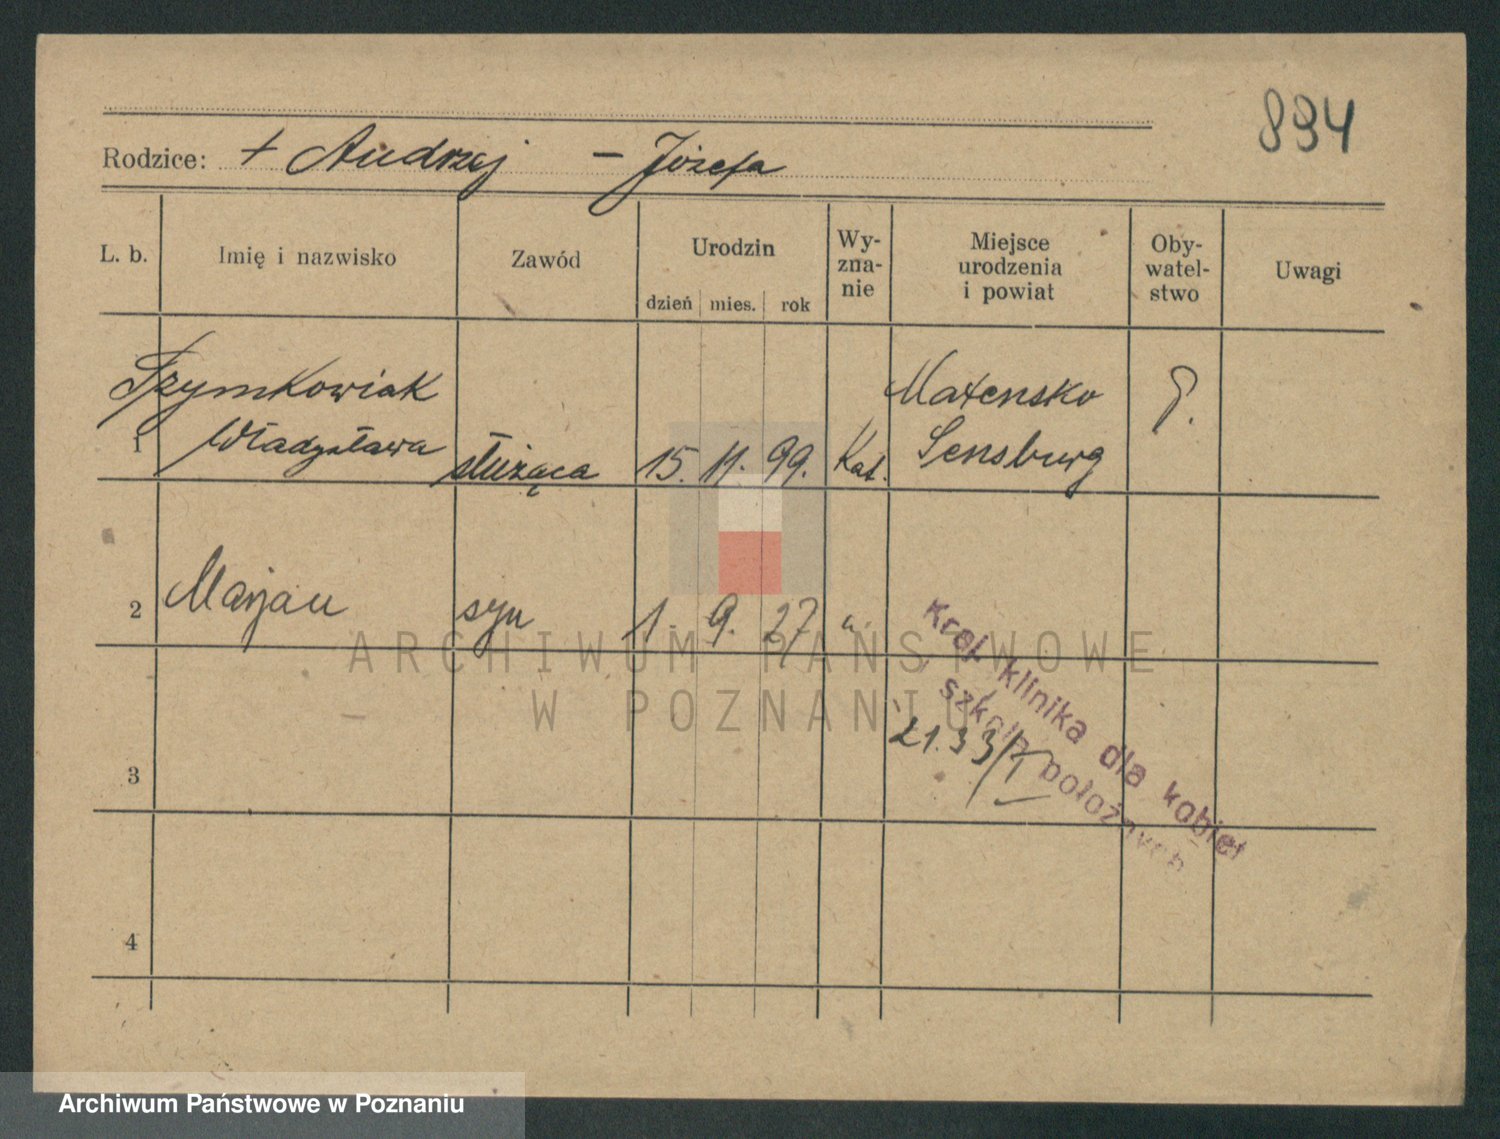 894
Rodzice: + Andrzej – Józefa
L. b. Imię i nazwisko Zawód Urodzin dzień mies. rok Wy-zna-nie Miejsce urodzenia i powiat Oby-watel-stwo Uwagi
Szymkowiak Matensko P.
1 Władysława służąca 15. 11. 99. Kat. Sensburg
2 Marjan syn 1. 9. 27
Kraj. klinika dla kobiet
szkoła położnych
21.33/I
3
4
ARCHIWUM PAŃSTWOWE
W POZNANIU
Archiwum Państwowe w Poznaniu